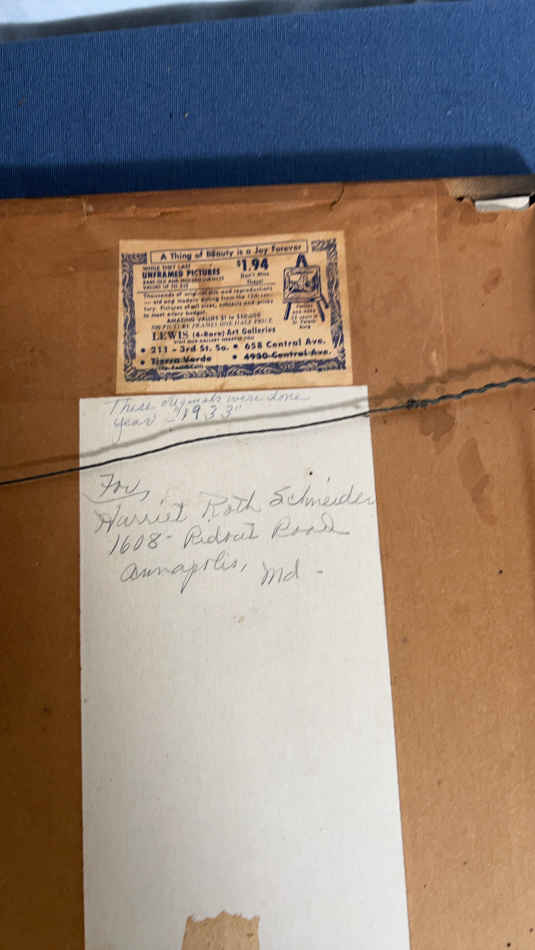 A Thing of Beauty is a Joy Forever
WHILE THEY LAST
UNFRAMED PICTURES
$1.94
Don't Miss
These!
RARE OLD AND MODERN
VALUE UP TO $25
Thousands of original and reproductions
— old and modern dating from the
tury. Pictures of all sizes, subjects and prices
to meet every budget.
AMAZING VALUES $1 to
ON PICTURE FRAMES ONE HALF PRICE
LEWIS (4-Rare) Art Galleries
• 211 - 3rd St. So. • 658 Central Ave.
• Tierra Verde • 4900 Central Ave.
These originals were done
year - "1933"
For,
Harriet Roth Schneider
1608 - Ridout Road
Annapolis, Md -